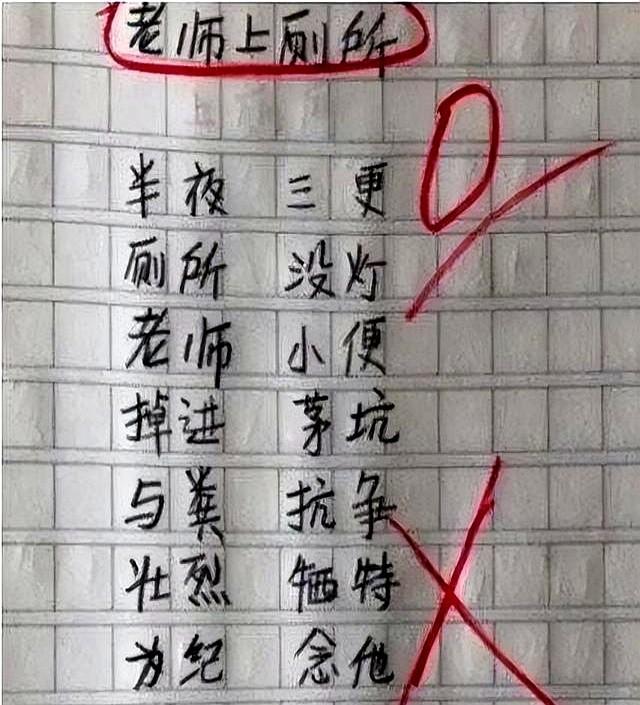 老师上厕所
半夜 三更
厕所 没灯
老师 小便
掉进 茅坑
与粪 抗争
壮烈 牺特
为纪 念他
0